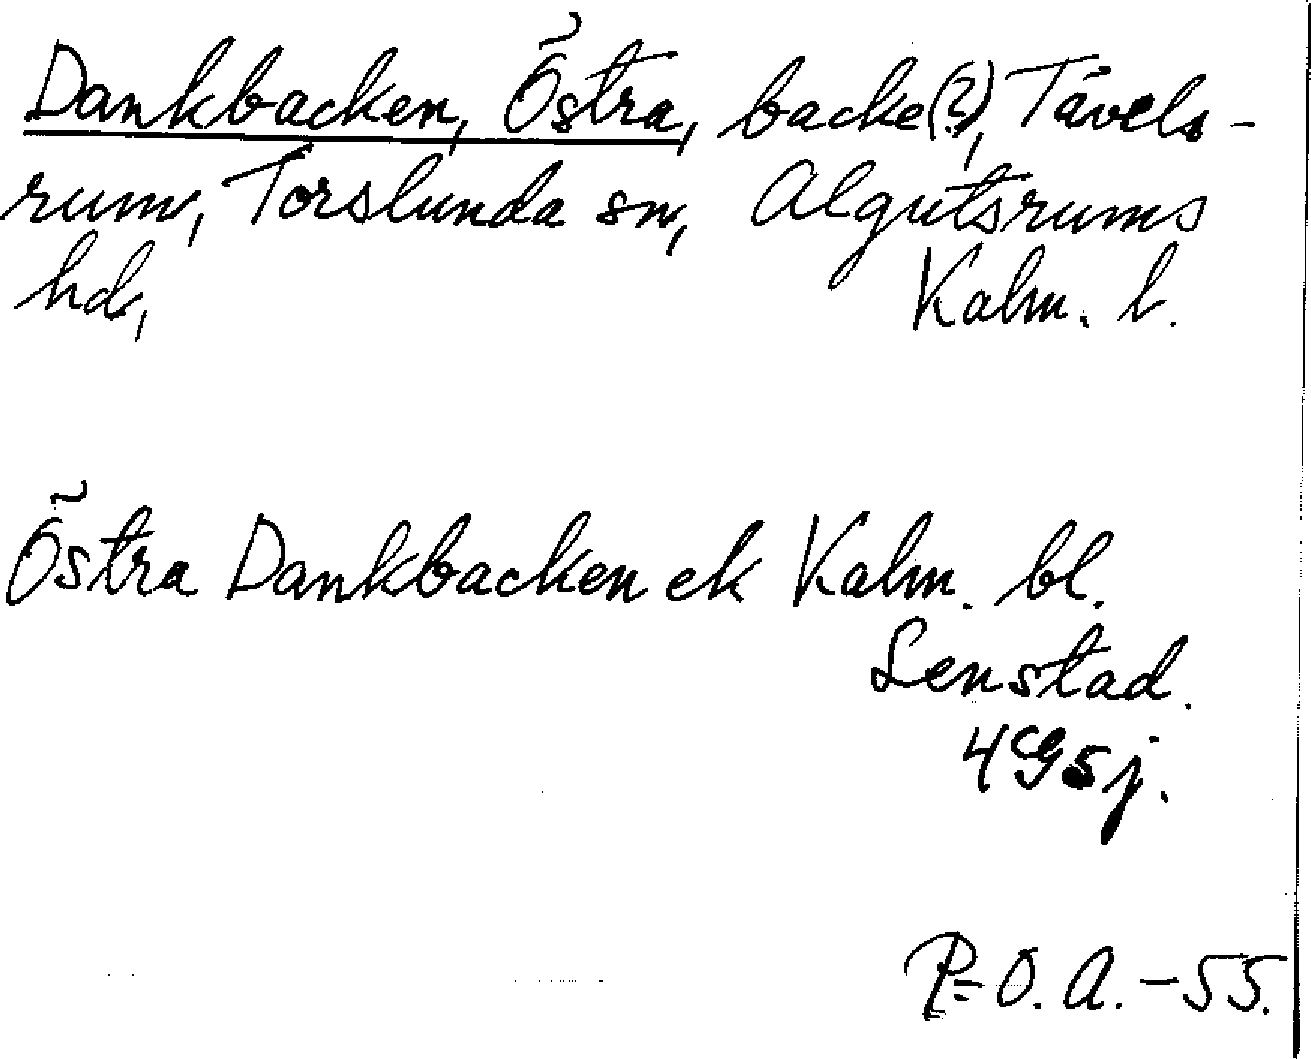 Dankbacken, Östra, backe(?), Tävels-
rum, Torslunda sn, Algutsrums
hd, Kalm. l.
Östra Dankbacken ek Kalm. bl.
Lenstad.
4G5j.
P-O. A. -55.